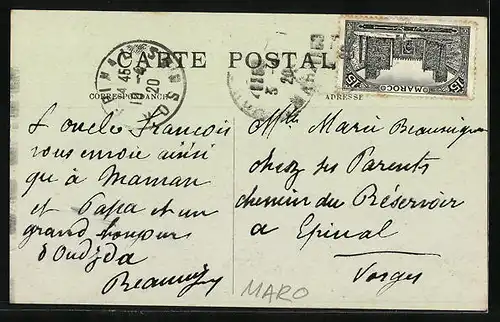 CARTE POSTALE
CORRESPONDANCE
ADRESSE
15 MAROC 15
L'oncle Francois
vous envoie ainsi
qu'à Maman
et Papa et un
grand bonjour
d'Oudjda
Mlle Marie
chez ses Parents
chemin du Réservoir
a Epinal
Vosges
MARO